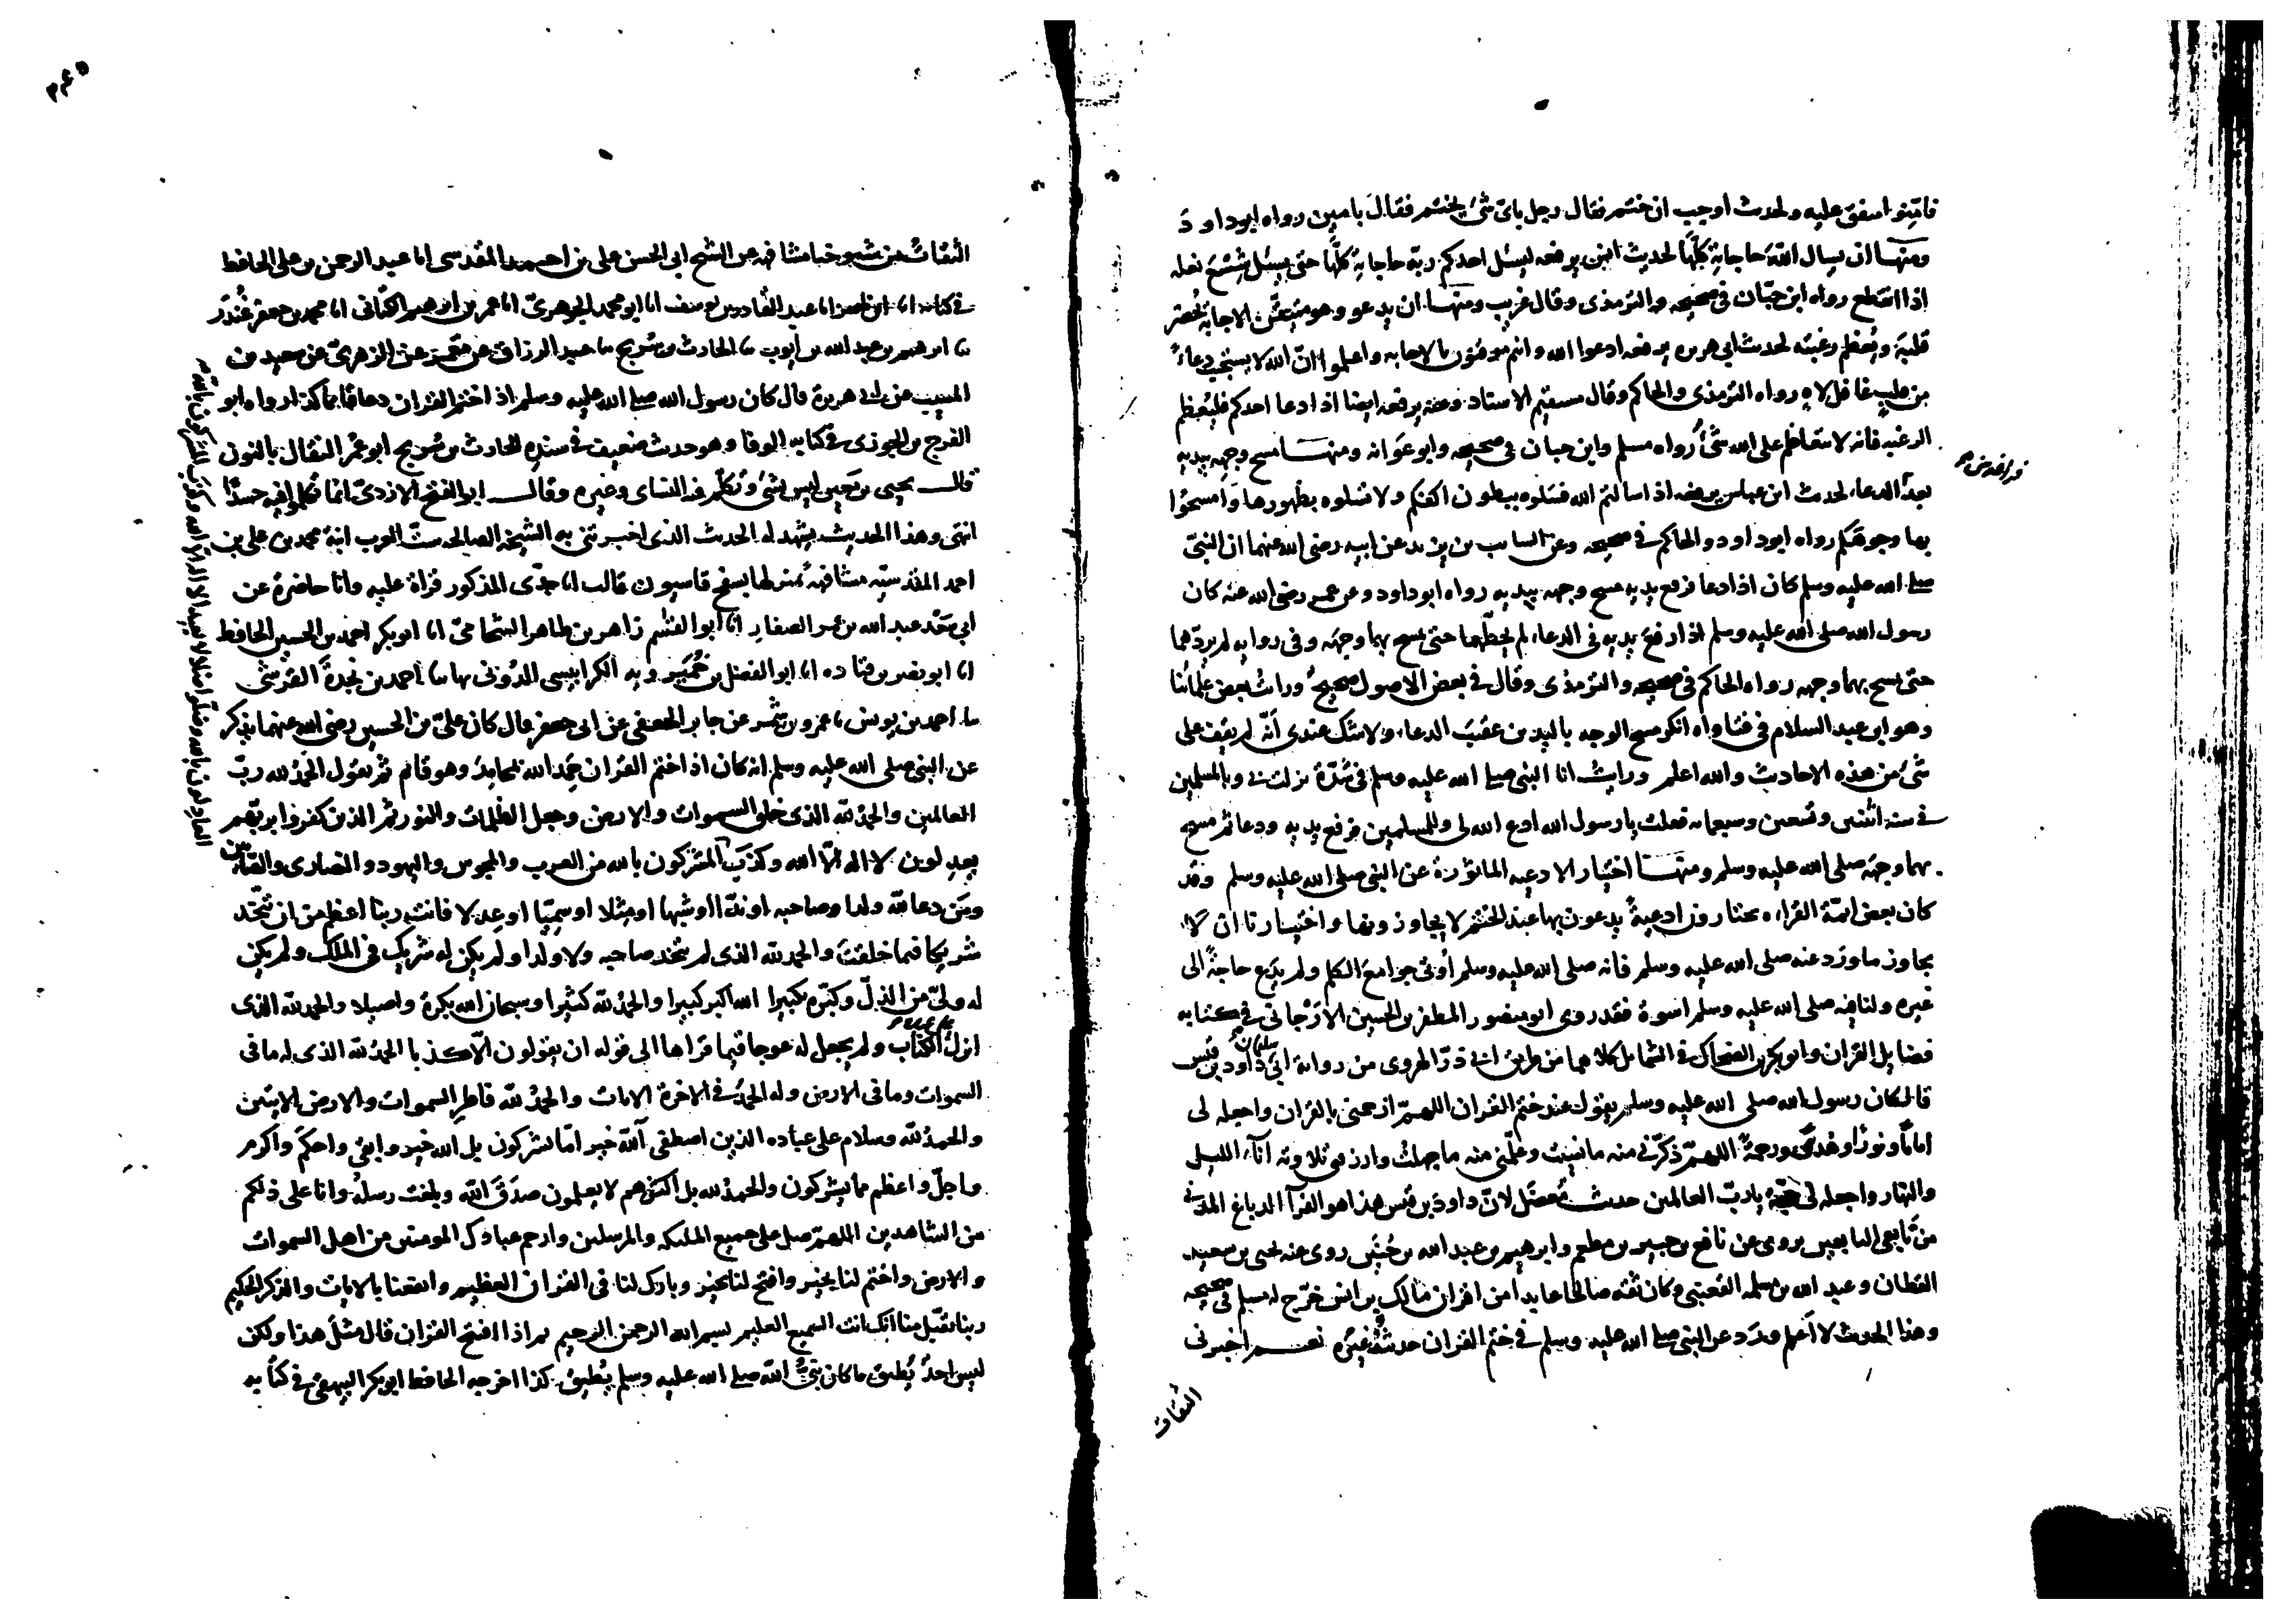 فامنوا متفق عليه ولحديث اوجب ان ختم فقال رجل باي شئ يختم فقال بامين رواه ابو داود
ومنها ان يسال الله حاجاته كلها لحديث انس يرفعه ليسئل احدكم ربه حاجاته كلها حتى يسئل شسع نعله
اذا انقطع رواه ابن حبان في صحيحه والترمذى وقال غريب ومنها ان يدعو وهو متيقن الاجابة يحضر
قلبه ويعظم رغبته لحديث ابي هريره يرفعه ادعوا الله وانتم موقنون بالاجابه واعلموا ان الله لا يستجيب دعاء
من قلب غافل لاه رواه الترمذى والحاكم وقال مستقيم الاسناد وعنه يرفعه ايضا اذا دعا احدكم فليعظم
الرغبه فانه لا يتعاظم على الله شئ رواه مسلم وابن حبان في صحيحه وابو عوانه ومنها مسح وجهه بيديه
بعد الدعاء لحديث ابن عباس يرفعه اذا سالتم الله فسلوه ببطون اكفكم ولا تسلوه بظهورها وامسحوا
بها وجوهكم رواه ابو داود والحاكم في صحيحه وعن السايب بن يزيد عن ابيه رضى الله عنهما ان النبى
صلى الله عليه وسلم كان اذا دعا فرفع يديه مسح وجهه بيديه رواه ابو داود وعن عمر رضى الله عنه كان
رسول الله صلى الله عليه وسلم اذا رفع يديه في الدعاء لم يحطهما حتى يمسح بهما وجهه وفى روايه لم يردهما
حتى يمسح بهما وجهه رواه الحاكم في صحيحه والترمذى وقال في بعض الاصول صحيح ورايت بعض علمائنا
وهو ابن عبد السلام في فتاواه انكر مسح الوجه باليدين عقيب الدعاء ولا شك عندى انه لم يقف على
شئ من هذه الاحاديث والله اعلم ورايت انا النبى صلى الله عليه وسلم في شدة نزلت بى وبالمسلمين
في سنه اثنتين وتسعين وسبعمايه فقلت يا رسول الله ادع الله لى وللمسلمين فرفع يديه ودعا ثم مسح
بهما وجهه صلى الله عليه وسلم ومنها اختيار الادعيه الماثورة عن النبى صلى الله عليه وسلم وقد
كان بعض ائمة القراءه يختارون ادعية يدعون بها عند الختم لا يجاوزونها واختيارنا ان لا
يجاوز ما ورد عنه صلى الله عليه وسلم فانه صلى الله عليه وسلم اوتى جوامع الكلم ولم يدع حاجة الى
غيره ولنا فيه صلى الله عليه وسلم اسوة فقد روى ابو منصور المظفر بن الحسين الارجانى في كتابه
فضايل القران وابو بكر بن الضحاك في الشمايل كلاهما من طريق ابى ذر الهروى من رواية ابى سليمان داود بن قيس
قال كان رسول الله صلى الله عليه وسلم يقول عند ختم القران اللهم ارحمنى بالقران واجعله لى
اماما ونورا وهدى ورحمة اللهم ذكرنى منه ما نسيت وعلمنى منه ما جهلت وارزقنى تلاوته آناء الليل
والنهار واجعله لى حجة يا رب العالمين حديث معضل لان داود بن قيس هذا هو الفرآ الدباغ المدنى
من تابعى التابعين يروى عن نافع بن جبير بن مطعم وابرهيم بن عبد الله بن حنين روى عنه يحيى بن سعيد
القطان وعبد الله بن مسلمه القعنبى وكان ثقه صالحا عابدا من اقران مالك بن انس خرج له مسلم في صحيحه
وهذا الحديث لا اعلم ورد عن النبى صلى الله عليه وسلم في ختم القران حديث غيره نعم اخبرنى
الثقات
الثقات من شيوخنا مشافهة عن الشيخ ابى الحسن على بن احمد المقدسى انا عبد الرحمن بن على الحافظ
في كتابه انا ابن ناصر انا عبد القادر بن يوسف انا ابو محمد الجوهرى انا عمر بن ابرهيم الكتانى انا محمد بن جعفر غندر
ثنا ابرهيم بن عبد الله بن ايوب ثنا الحارث بن سريج ثنا عبد الرزاق عن معمر عن الزهرى عن سعيد بن
المسيب عن ابى هريرة قال كان رسول الله صلى الله عليه وسلم اذا ختم القران دعا قايما كذا رواه ابو
الفرج بن الجوزى في كتابه الوفا وهو حديث ضعيف في سنده الحارث بن سريج ابو عمر النقال بالنون
قال يحيى بن معين ليس بشئ وتكلم فيه النساى وغيره وقال ابو الفتح الازدى انما تكلموا فيه حسدا
انتهى وهذا الحديث يشهد له الحديث الذى اخبرتنى به الشيخة الصالحه ست العرب ابنة محمد بن على بن
احمد المقدسيه مشافهة بمنزلها بسفح قاسيون قالت انا جدى المذكور قراة عليه وانا حاضرة عن
ابى سعد عبد الله بن عمر الصفار انا ابو القسم زاهر بن طاهر الشحامى انا ابو بكر احمد بن الحسين الحافظ
انا ابو نصر بن قتاده انا ابو الفضل بن خميرويه الكرابيسى الهروى بها ثنا احمد بن نجدة القرشى
ثنا احمد بن يونس ثنا عمرو بن شمر عن جابر الجعفى عن ابى جعفر قال كان على بن الحسين رضى الله عنهما يذكر
عن النبى صلى الله عليه وسلم انه كان اذا ختم القران حمد الله بمحامد وهو قايم ثم يقول الحمد لله رب
العالمين والحمد لله الذى خلق السموات والارض وجعل الظلمات والنور ثم الذين كفروا بربهم
يعدلون لا اله الا الله وكذب المشركون بالله من العرب والمجوس واليهود والنصارى والصابين
ومن دعا لله ولدا او صاحبه او ندا او شبها او مثلا او سميا او عدلا فانت ربنا اعظم من ان تتخذ
شريكا فيما خلقت والحمد لله الذى لم يتخذ صاحبه ولا ولدا ولم يكن له شريك في الملك ولم يكن
له ولى من الذل وكبره تكبيرا الله اكبر كبيرا والحمد لله كثيرا وسبحان الله بكرة واصيلا والحمد لله الذى
انزل على عبده الكتاب ولم يجعل له عوجا قيما قراها الى قوله ان يقولون الا كذبا الحمد لله الذى له ما فى
السموات وما فى الارض وله الحمد فى الاخرة الايات والحمد لله فاطر السموات والارض الايتين
والحمد لله وسلام على عباده الذين اصطفى آلله خير اما تشركون بل الله خير وابقى واحكم واكرم
واجل واعظم مما يشركون والحمد لله بل اكثرهم لا يعلمون صدق الله وبلغت رسله وانا على ذلكم
من الشاهدين اللهم صل على جميع الملئكه والمرسلين وارحم عبادك المومنين من اهل السموات
والارض واختم لنا بخير وافتح لنا بخير وبارك لنا فى القران العظيم وانفعنا بالايات والذكر الحكيم
ربنا تقبل منا انك انت السميع العليم بسم الله الرحمن الرحيم ثم اذا افتتح القران قال مثل هذا ولكن
ليس احد يطيق ما كان نبى الله صلى الله عليه وسلم يطيق كذا اخرجه الحافظ ابو بكر البيهقى فى كتابه
العادلون بالله وضلوا ضلالا بعيدا لا اله الا الله وكذب المشركون بالله